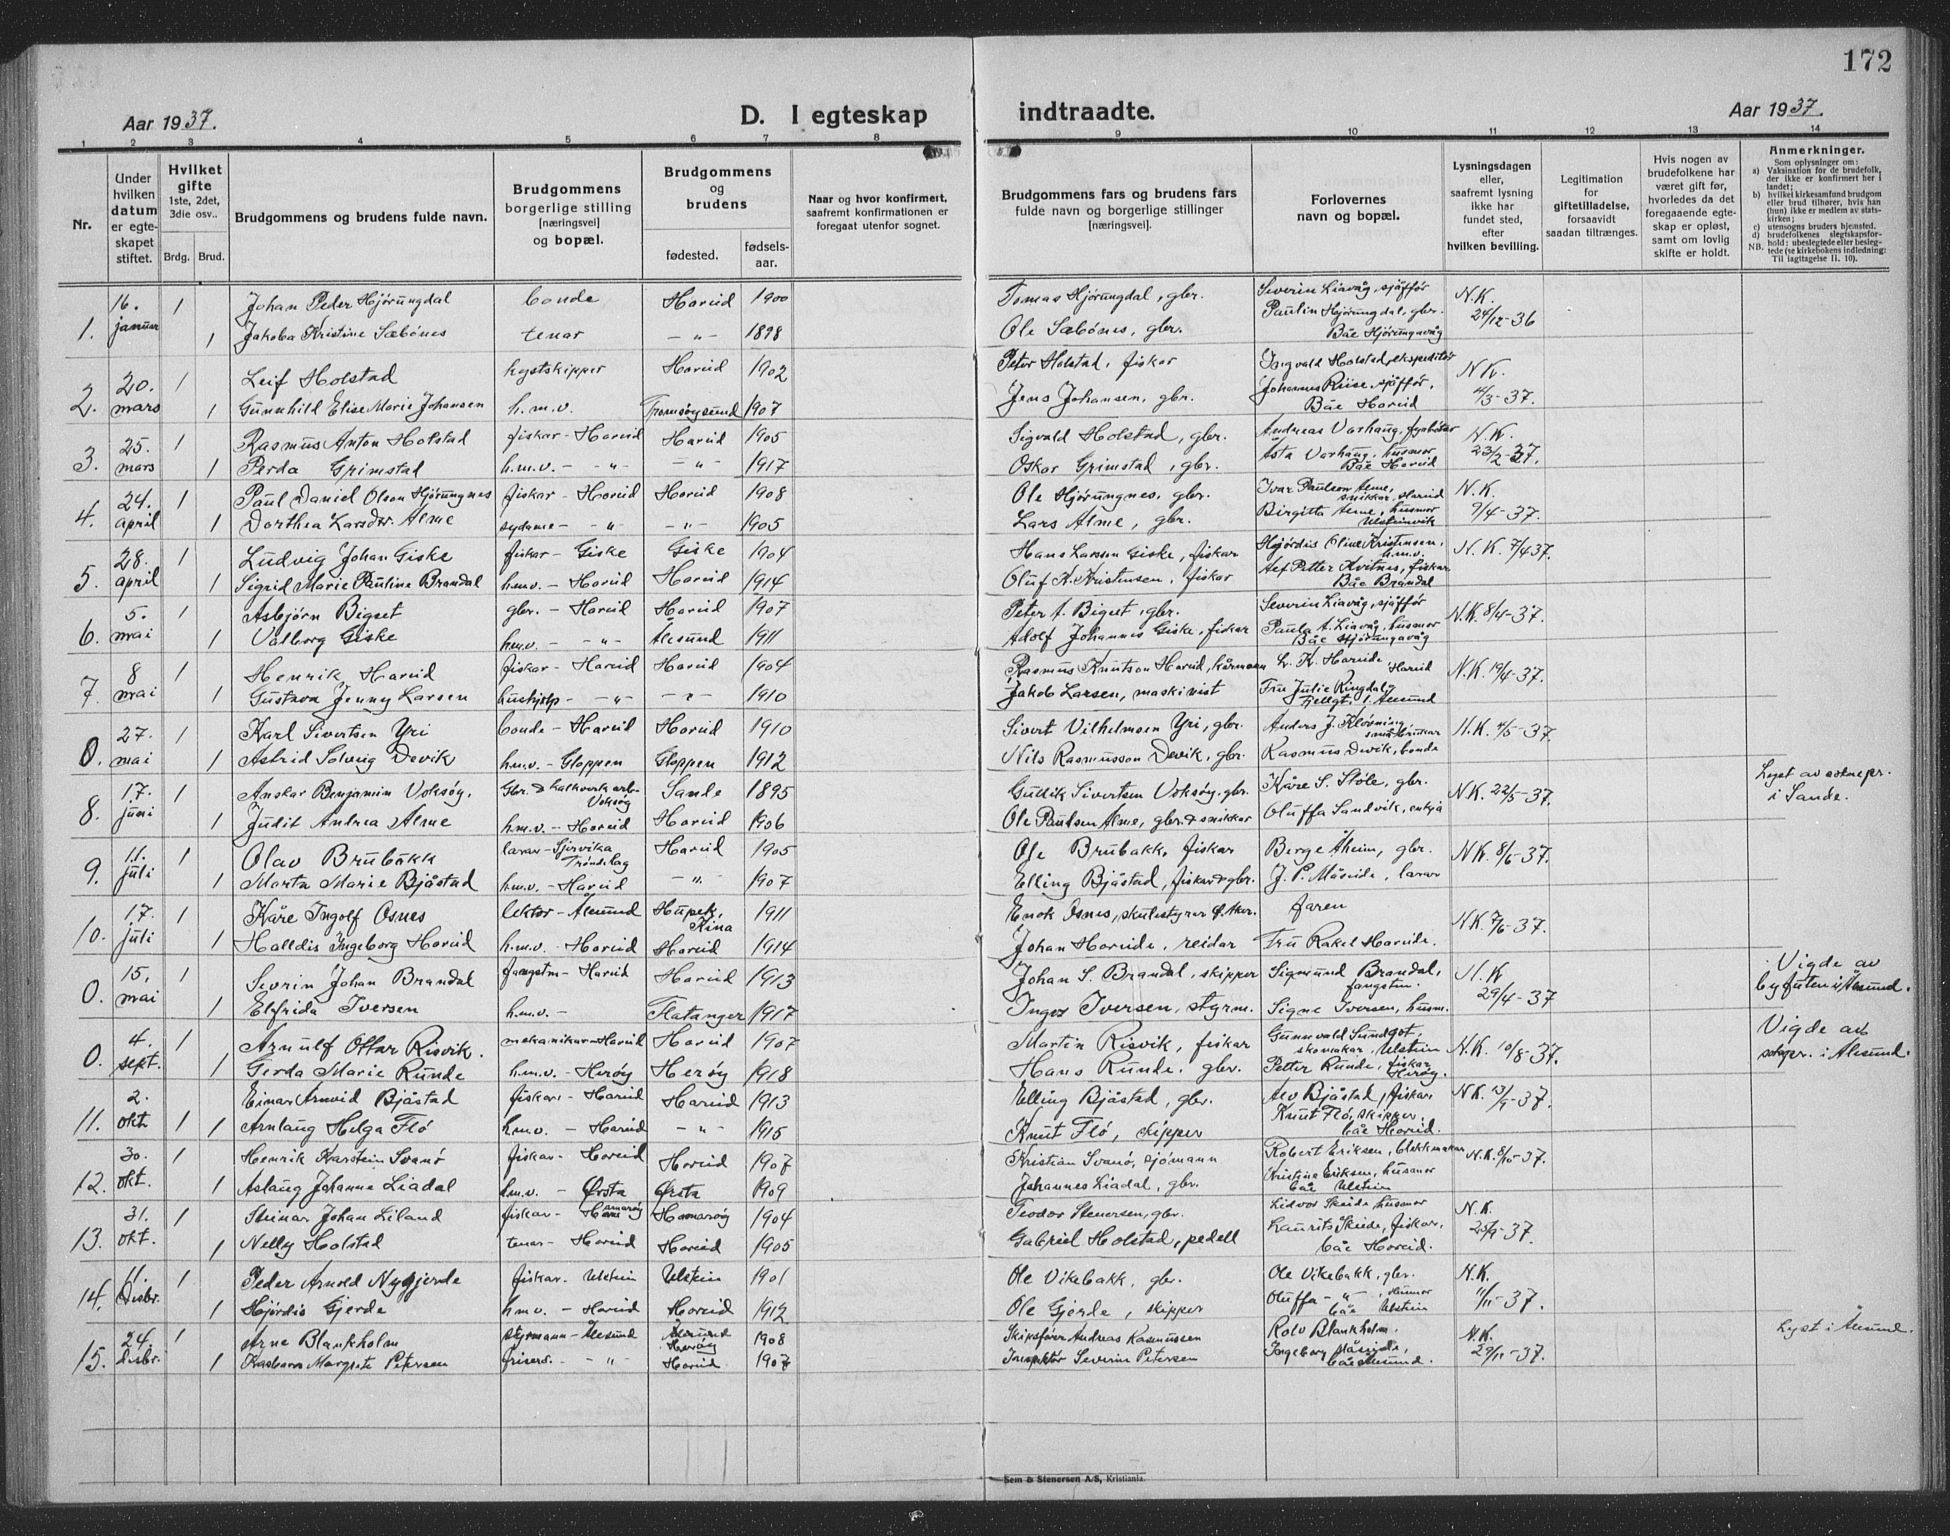 172
Aar 1937.
D. I egteskap indtraadte.
Aar 1937.
1 2 3 4 5 6 7 8 9 10 11 12 13 14
Nr.
Under hvilken datum er egteskapet stiftet.
Hvilket gifte 1ste, 2det, 3die osv.. Brdg. Brud.
Brudgommens og brudens fulde navn.
Brudgommens borgerlige stilling [næringsvei] og bopæl.
Brudgommens og brudens fødested. fødselsaar.
Naar og hvor konfirmert, saafremt konfirmationen er foregaat utenfor sognet.
Brudgommens fars og brudens fars fulde navn og borgerlige stillinger [næringsvei].
Forlovernes navn og bopæl.
Lysningsdagen eller, saafremt lysning ikke har fundet sted, efter hvilken bevilling.
Legitimation for giftetilladelse, forsaavidt saadan tiltrænges.
Hvis nogen av brudefolkene har været gift før, hvorledes da det foregaaende egteskap er opløst, samt om lovlig skifte er holdt.
Anmerkninger. Som oplysninger om: a) Vaksination for de brudefolk, der ikke er konfirmert her i landet; b) hvilket kirkesamfund brudgom eller brud tilhører, hvis han (hun) ikke er medlem av statskirken; c) utensogns bruders hjemsted. d) brudefolkenes slegtskapsforhold: ubeslegtede eller beslegtede (se kirkebokens indledning: NB. Til iagttagelse II. 10).
1. 16. januar 1 Johan Peder Hjørungdal bonde Hareid 1900 Tomas Hjørungdal, gbr. Severin Liavåg, sjåffør N.K. 24/12-36
1 Jakoba Kristine Sæbönes tenar —„— 1898 Ole Sæbönes, gbr. Paulin Hjørungdal, gbr. Båe Hjørungavåg
2. 20. mars 1 Leif Holstad Hareid 1902 Peter Holstad, fiskar Ingvald Holstad, ekspeditør N.K. 4/3-37.
1 Gunnhild Elise Marie Johansen h.m.v. Tromsöysund 1907 Jens Johansen, gbr. Johannes Riise, sjåffør, Båe Hareid
3. 25. mars 1 Rasmus Anton Holstad fiskar - Hareid Hareid 1905 Sigvald Holstad, gbr. Andreas Varhaug, N.K. 23/2-37.
1 Perda Grimstad h.m.v. - „ —„— 1917 Oskar Grimstad, gbr. Asta Varhaug, husmor Båe Hareid
4. 24. april 1 Paul Daniel Olson Hjørungnes fiskar - Hareid Hareid 1908 Ole Hjørungnes, gbr. Ivar Paulson Alme, snikkar, Hareid N.K. 9/4-37.
1 Dorthea Larsdtr. Alme sydame - „ —„— 1905 Lars Alme, gbr. Birgitta Alme, husmor Ulsteinvik
5. 28. april 1 Ludvig Johan Giske fiskar - Giske Giske 1904 Hans Larssen Giske, fiskar Hjördis Oline Kristensen, h.m.v. N.K. 7/4 37.
1 Sigrid Marie Pauline Brandal h.m.v. - Hareid Hareid 1914 Oluf A. Kristensen, fiskar Petter Kvitnes, fiskar Båe Brandal
6. 5. mai 1 Asbjörn Bigset gbr. - Hareid Hareid 1907 Peter A. Bigset, gbr. Severin Liavåg, sjåffør N.K. 8/4-37.
1 Valborg Giske h.m.v. - „ Ålesund 1911 Adolf Johannes Giske, fiskar Paula A. Liavåg, husmor Båe Hjørungavåg
7 8 mai 1 Henrik Hareid fiskar - Hareid Hareid 1904 Rasmus Knutson Hareid, L. K. Hareide Hareid N.K. 19/4-37.
1 Gustava Jenny Larsen hushjelp - „ —„— 1910 Jakob Larsen, maskinist Fru Julie Ringdal, Ålesund
0. 27. mai 1 Karl Sivertsen Yri bonde - Hareid Hareid 1910 Sivert Vilhelmsen Yri, gbr. Anders J. Klovning, småbrukar N.K. 4/5-37.
1 Astrid Solveig Devik h.m.v. - Gloppen Gloppen 1912 Nils Rasmusson Devik, gbr. Rasmus Devik, bonde
8. 17. juni 1 Anskar Benjamin Voksöy, Gbr. & kalkverk arb. Voksöy Sande 1895 Gullik Sivertsen Voksöy, gbr. Kåre S. Støle, gbr. N.K. 22/5-37. Lyst av soknepr. i Sande.
1 Judit Andrea Alme h.m.v. - Hareid Hareid 1906 Ole Paulsen Alme, gbr. & snikkar Oluffa Sandvik, enkja
9. 11. juli 1 Olav Brubakk lærar - Trøndelag Hareid 1905 Ole Brubakk, fiskar Berge Åheim, gbr. N.K. 8/6-37.
1 Marta Marie Bjåstad h.m.v. - Hareid —„— 1907 Elling Bjåstad, fiskar & gbr. J. P. Måseide, lærar
10. 17. juli 1 Kåre Ingolf Osnes lektor - Ålesund Hupeh, Kina 1911 Enok Osnes, skulestyrer Ø. Aker. Faren N.K. 7/6-37.
1 Halldis Ingeborg Hareid h.m.v. - Hareid Hareid 1914 Johan Hareide, reidar Fru Rakel Hareide.
0. 15. mai 1 Sevrin Johan Brandal fangstm - Hareid Hareid 1913 Johan S. Brandal, skipper Sigmund Brandal, fangstm. N.K 29/4-37 Vigde av byfuten i Ålesund.
1 Elfrida Iversen h.m.v. - Flatanger 1917 Ingoz Iversen, styrm. Signe Iversen, husm.
0. 4. sept. 1 Arnulf Ottar Risvik. mekanikar - Hareid Hareid 1907 Martin Risvik, fiskar Gunnvald Sundgot, skomakar, Ulstein N.K. 10/8-37. Vigde av soknepr. i Ålesund.
1 Gerda Marie Runde h.m.v. - Herøy Herøy 1918 Hans Runde, gbr. Petter Runde, fiskar Herøy.
11. 2. okt. 1 Einar Arnvid Bjåstad fiskar - Hareid Hareid 1913 Elling Bjåstad, gbr. Alv Bjåstad, fiskar N.K. 13/9-37.
1 Arnlaug Helga Flö h.m.v. - Hareid —„— 1915 Knut Flö, skipper Knut Flö, skipper, båe Hareid.
12. 30. okt. 1 Henrik Karstein Svanö fiskar - Hareid Hareid 1907 Kristian Svanö, sjömann Robert Eriksen, blekkmakar N.K. 8/10-37.
1 Aslaug Johanna Liadal h.m.v. - Ørsta Ørsta 1909 Johannes Liadal, gbr. Kristine Eriksen, husmor båe Ulstein
13. 31. okt. 1 Steinar Johan Liland fiskar - Hamarøy Hamarøy 1904 Teodor Stenersen, gbr. Lidvor Skeide husmor N.K. 25/9-37.
1 Nelly Holstad tenar - Hareid Hareid 1905 Gabriel Holstad, pedell Laurits Skeide, fiskar, båe Hareid.
14. 11. Disbr. 1 Peder Arnold Nygjerde fiskar - Ulstein Ulstein 1901 Ole Vikebakk, gbr. Ole Vikebakk, gbr. N.K. 11/11-37.
1 Hjördis Gjerde h.m.v. - Hareid Hareid 1912 Ole Gjerde, skipper Oluffa -„- husmor båe Ulstein
15. 24. Disbr. 1 Arne Blankholm styrmann - Ålesund Herøy 1908 Skipsförer Andreas Rasmussen Rolv Blankholm, N.K. 29/11-37. Lyst i Ålesund.
1 Margrete Petersen - „ Hareid 1907 Inspektör Severin Petersen Ingeborg Måseide, båe Ålesund.
Sem & Stenersen A/S, Kristiania.